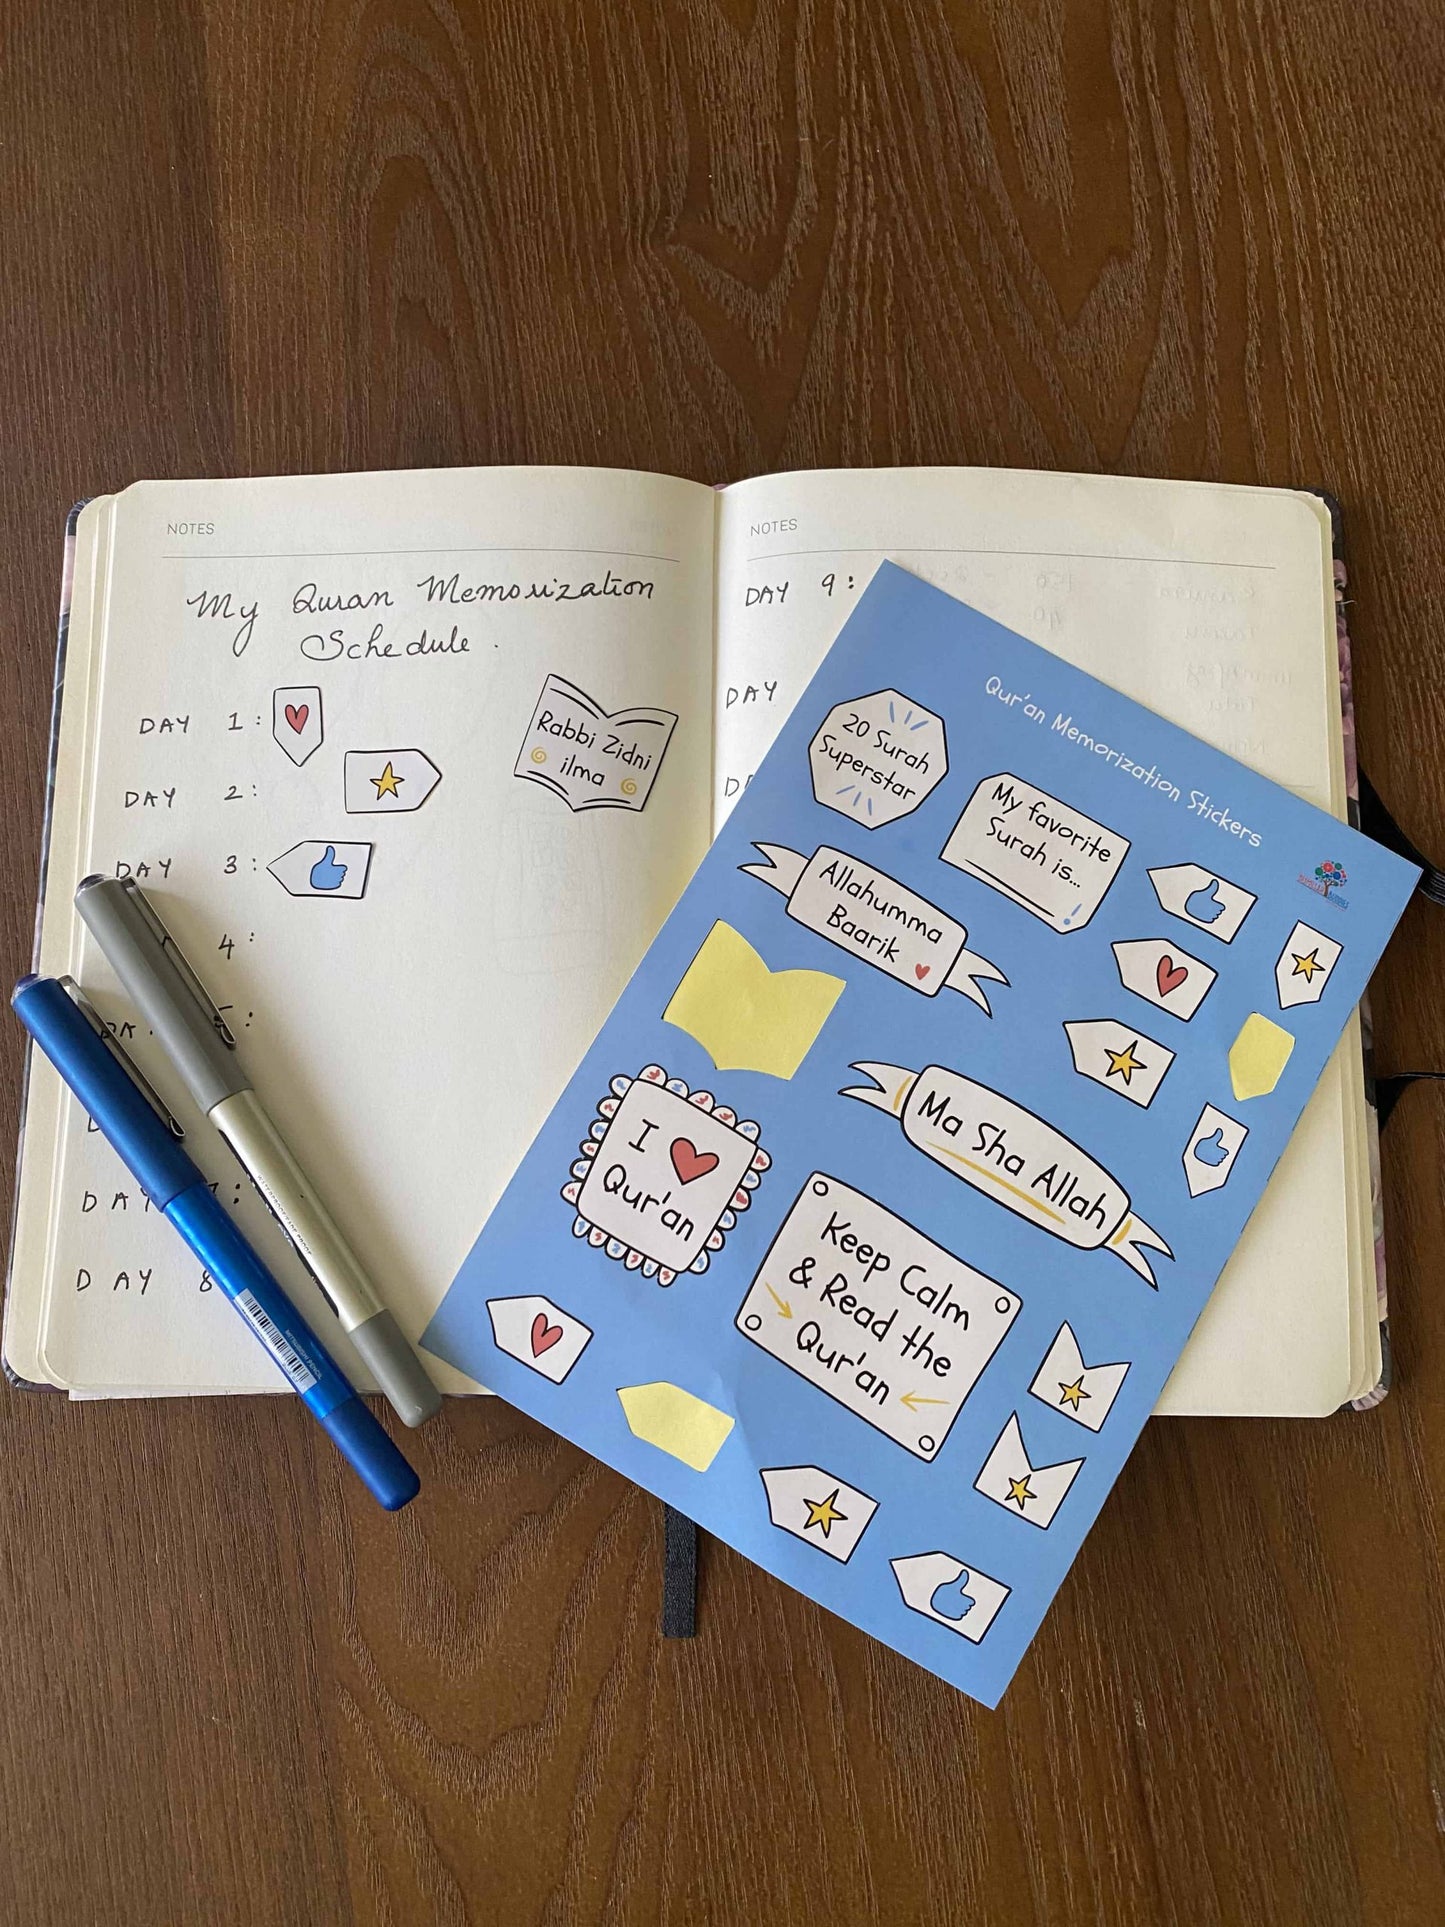 NOTES
My Quran Memorization
Schedule.
DAY 1:
DAY 2:
DAY 3:
4:
DA
5:
D
DAY 7:
DAY 8
Rabbi Zidni
ilma
NOTES
DAY 9:
DAY
D
Qur'an Memorization Stickers
20 Surah
Superstar
My favorite
Surah is...
!
Allahumma
Baarik
I
Qur'an
Ma Sha Allah
Keep Calm
& Read the
Qur'an
MITSUBISHI PENCIL